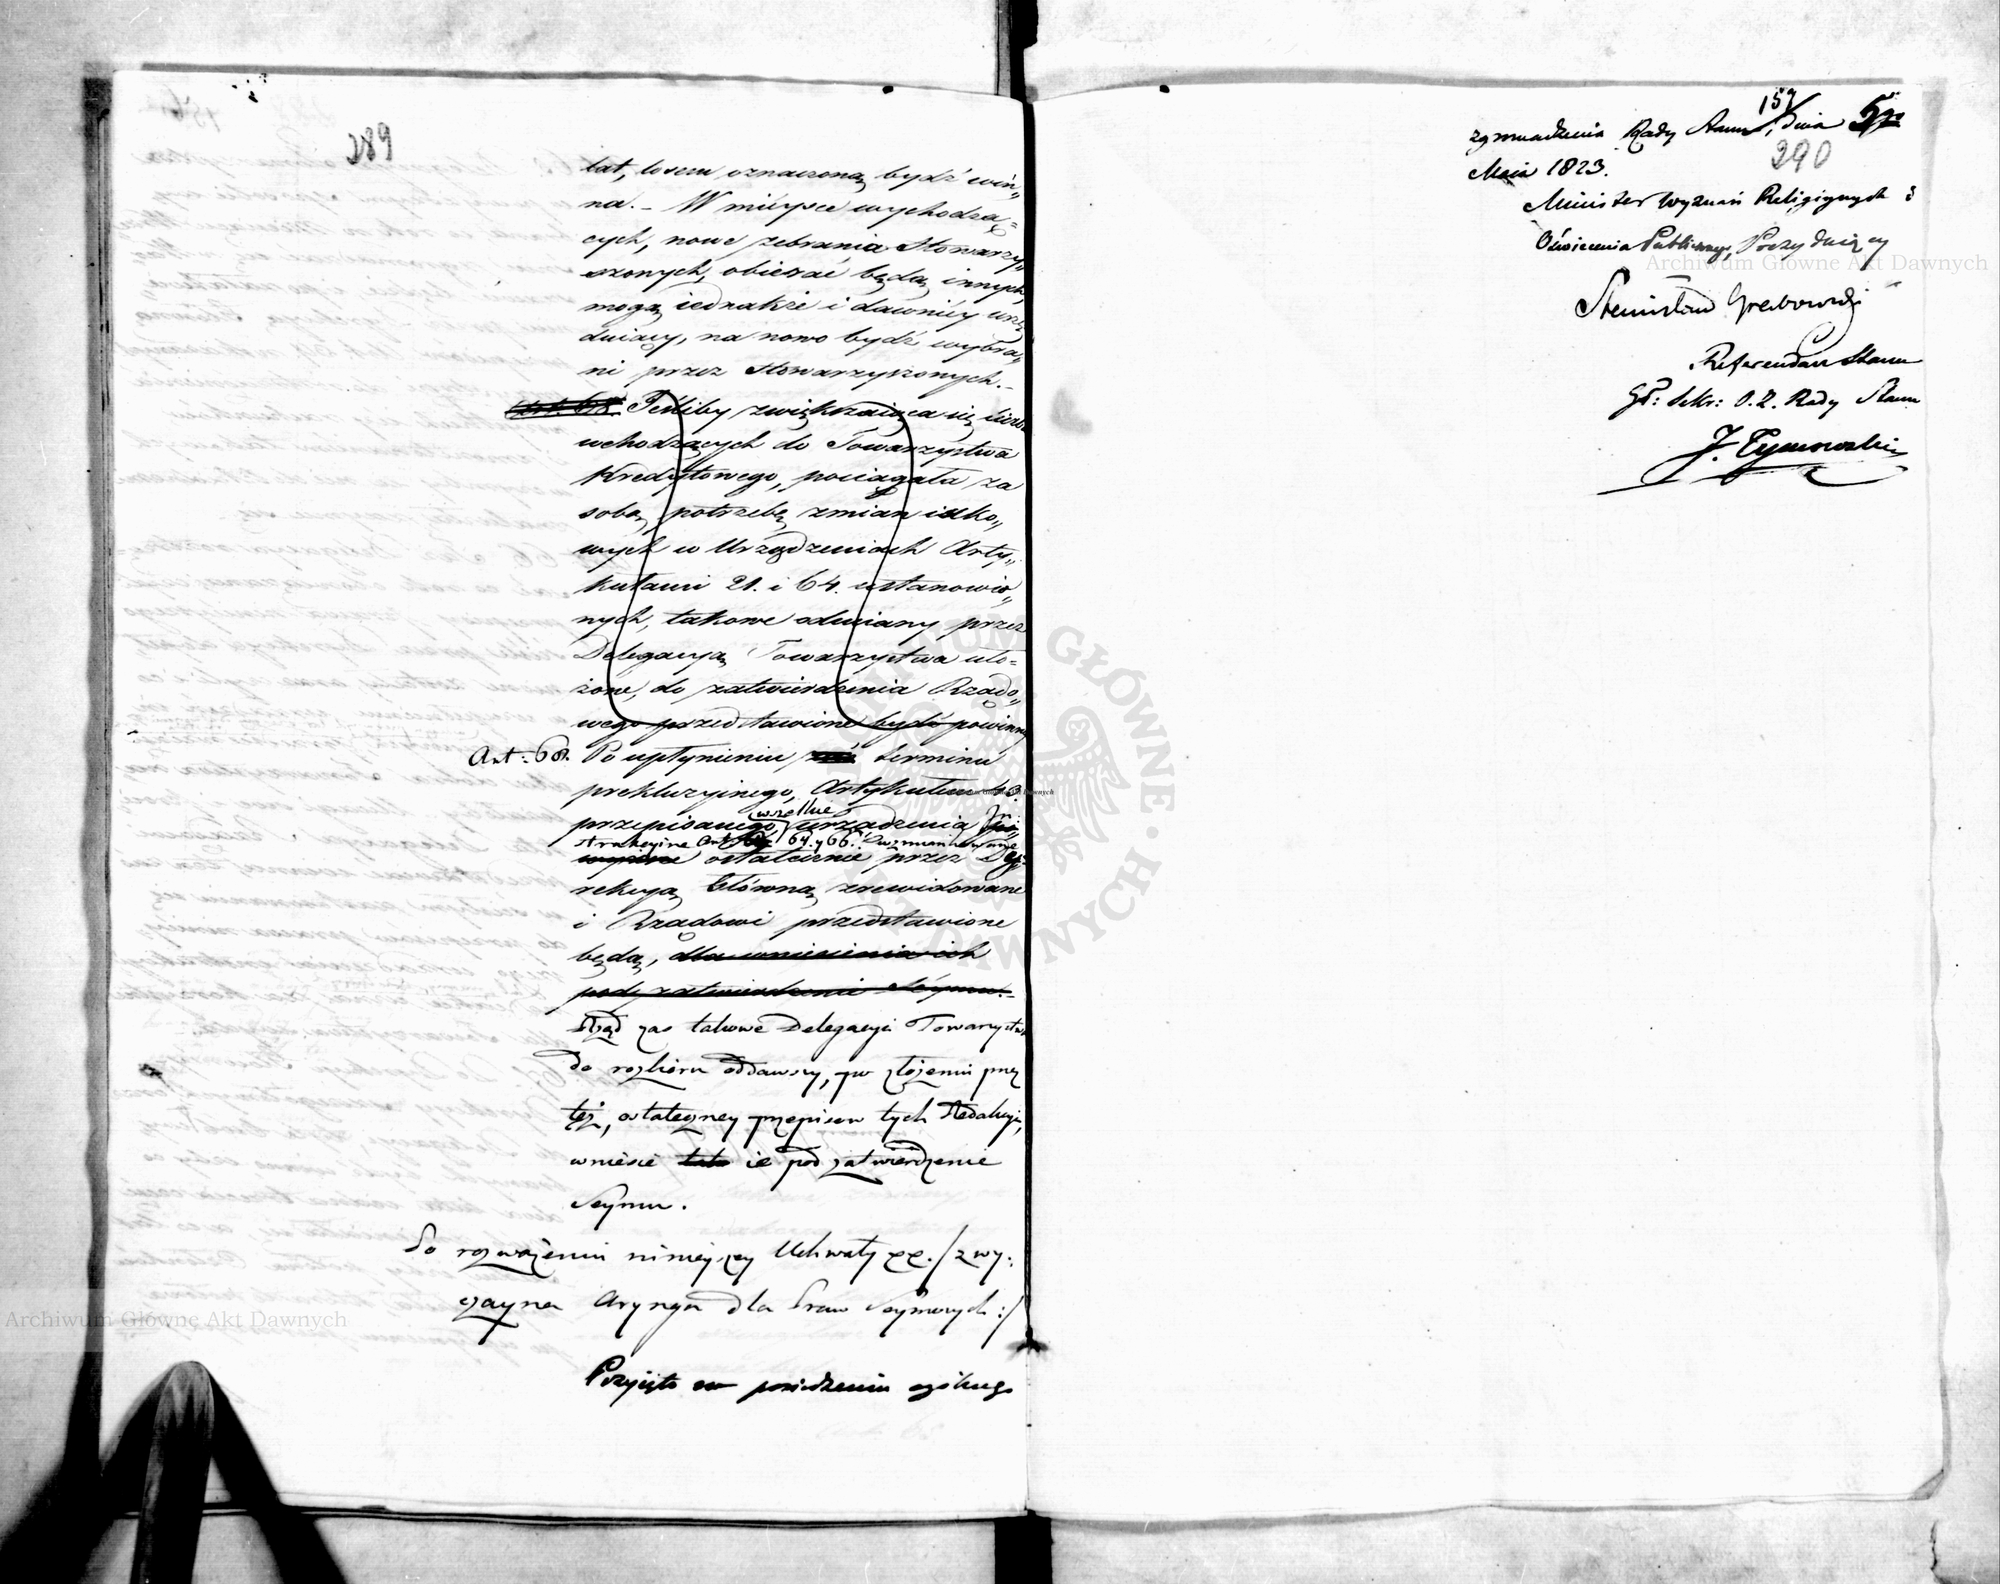 289
lat, losem oznaczoną bydź win„
na. – W mieysce wychodzą„
cych, nowe zebrania Stowarzy„
szonych, obierać będą innych,
mogą iednakże i dawniéy urzę
duiący, na nowo bydź wybra„
ni przez Stowarzyszonych. –
Art. 68. Jeśliby zwiększaiąca się liczba
wchodzących do Towarzystwa
Kredytowego, pociągała za
sobą potrzebę zmian iako„
wych w Urządzeniach Arty„
kułami 21. i 64. ustanowio„
nych, takowe odmiany przez
Delegacyą Towarzystwa uło„
żone, do zatwierdzenia Rządo„
wego przedstawione bydź powinny
Art: 68. Po upłynieniu zaś terminu
prekluzyinego, Artykułem 43.
przepisanego, wszelkie urządzenia
strukcyine Art: 64. y 66.
ostatecznie przez Dy„
rekcyą Główną zrewidowane
i Rządowi przedstawione
będą, dla wniesienia ich
pod zatwierdzenie Seymu. –
Rząd zas takowe Delegacyi Towarzystwa
do rozbioru oddawszy, po złożeniu przez
tęż, ostateczney przepisow tych Redakcyi,
wniesie ie pod zatwierdzenie
Seymu.
Po rozważeniu ninieyszey Uchwały / zwy:
czayna Arynga dla Praw Seymowych :/
Przyięto na posiedzeniu ogólnego
157
290
zgromadzenia Rady Stanu, dnia
Maia 1823.
Minister Wyznań Religiynych i
Oświecenia Publicznego, Prezyduiący
Stanisław Grabowski
Referendarz Stanu
Gł: Sekr: O. Z. Rady Stanu
J. Tymowski
Archiwum Główne Akt Dawnych
Archiwum Główne Akt Dawnych
ARCHIWUM GŁÓWNE AKT DAWNYCH